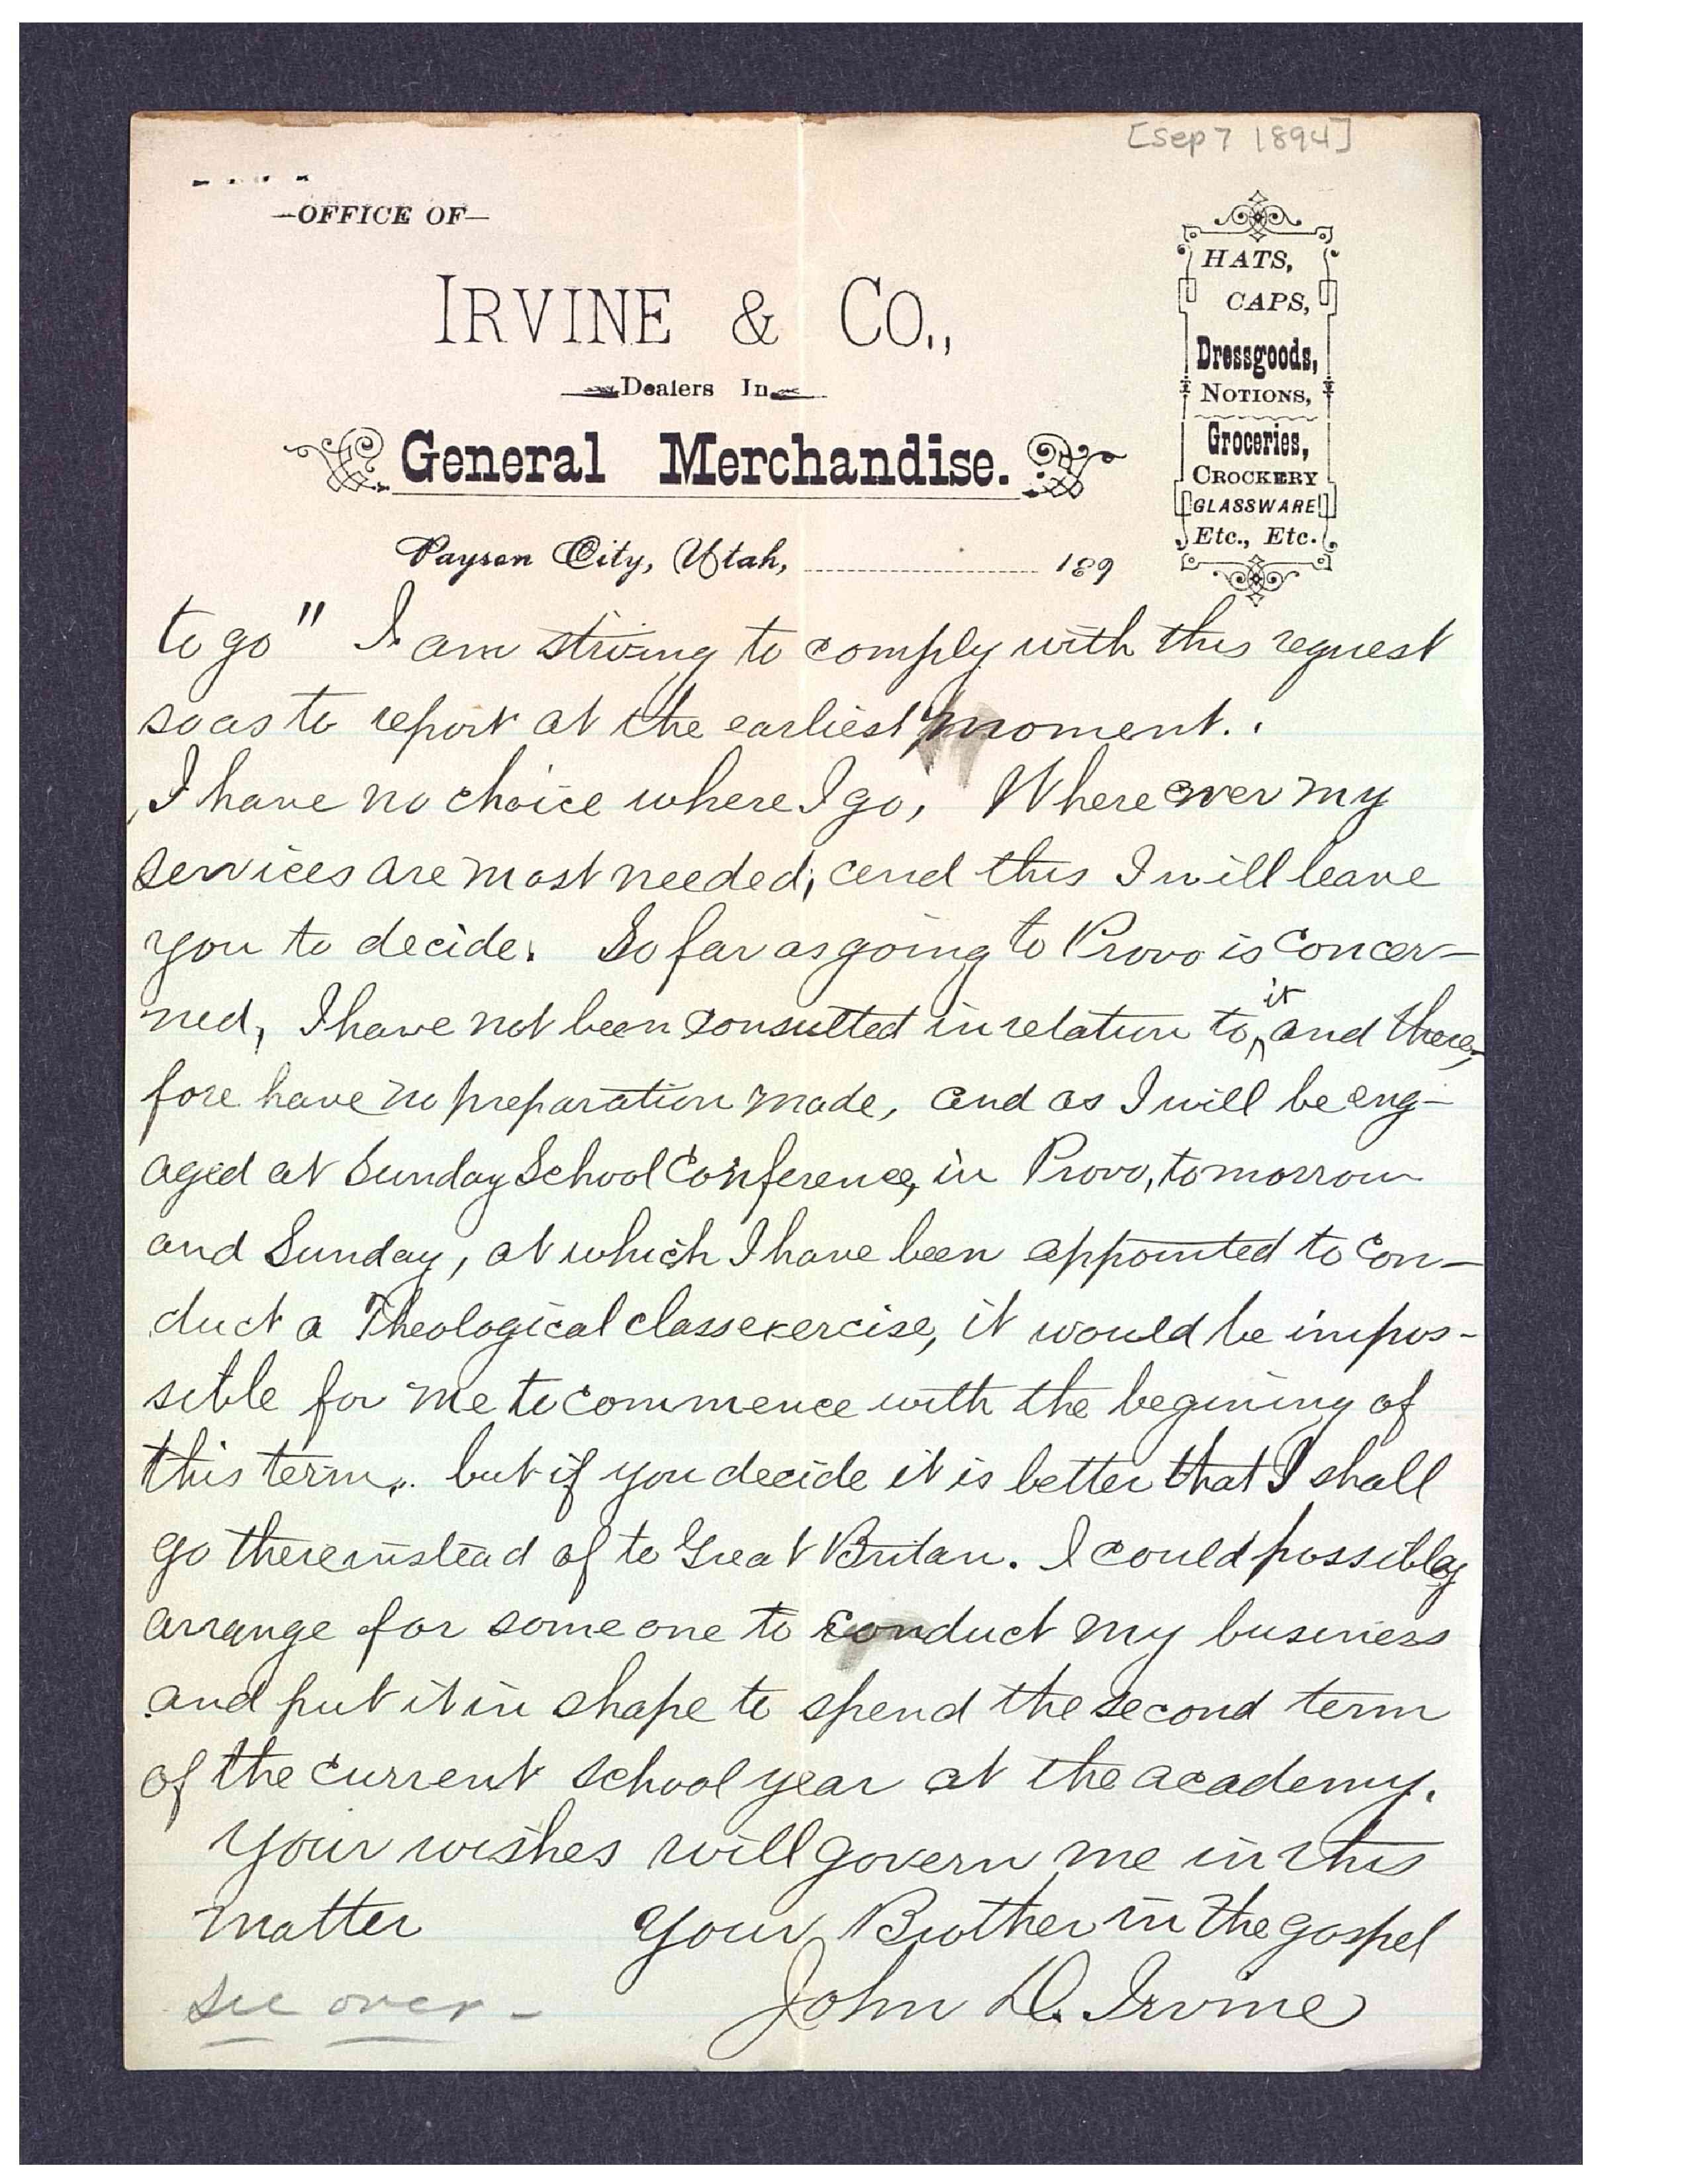 [Sep 7 1894]
—OFFICE OF—
IRVINE & CO.,
Dealers In
General Merchandise.
Payson City, Utah, 189
HATS,
CAPS,
Dressgoods,
NOTIONS,
Groceries,
CROCKERY
GLASSWARE
Etc., Etc.
to go" I am striving to comply with this request
so as to report at the earliest moment.
I have no choice where I go, Where ever my
services are most needed, and this I will leave
you to decide. So far as going to Provo is concer-
ned, I have not been consulted in relation to it and there-
fore have no preparation made, and as I will be eng-
aged at Sunday School Conference, in Provo, tomorrow
and Sunday, at which I have been appointed to con-
duct a Theological class exercise, it would be impos-
sible for me to commence with the begining of
this term. but if you decide it is better that I shall
go there instead of to Great Britan. I could possibly
arrange for some one to conduct my business
and put it in shape to spend the second term
of the current school year at the academy.
Your wishes will govern me in this
matter Your Brother in the gospel
John D. Irvine
see over -